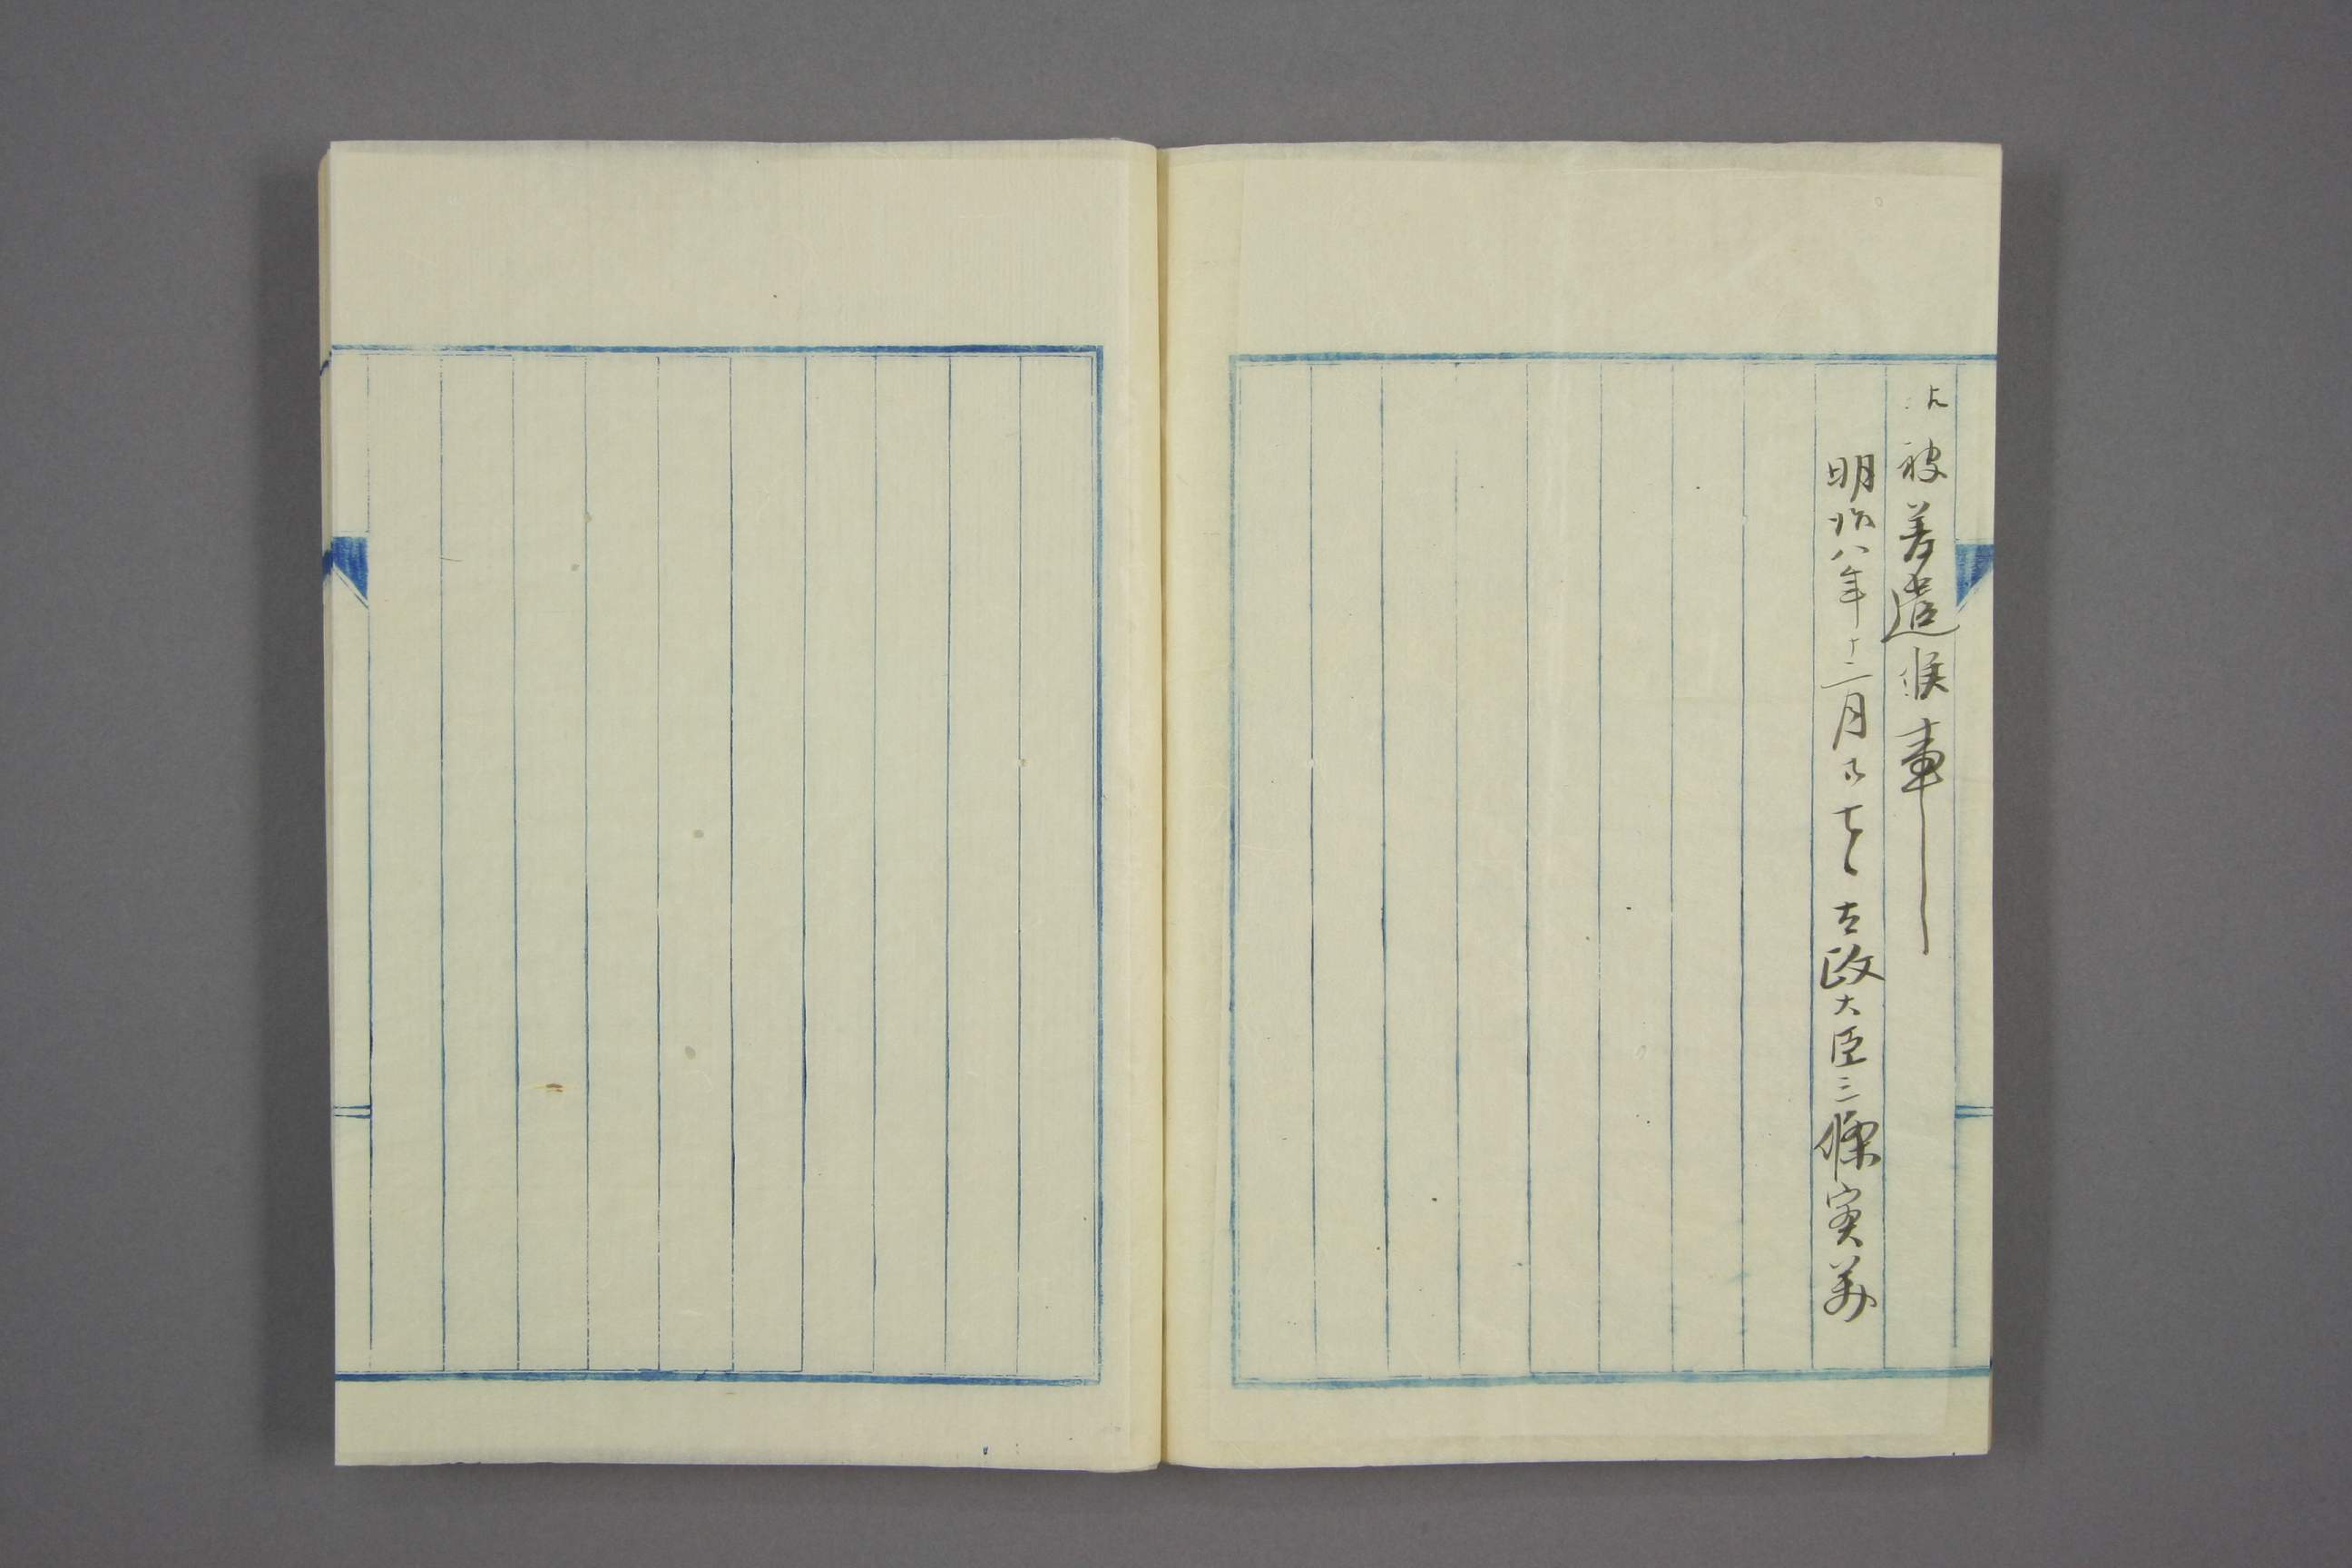 被差遣候事
明治八年十二月廿七日 太政大臣三條実美